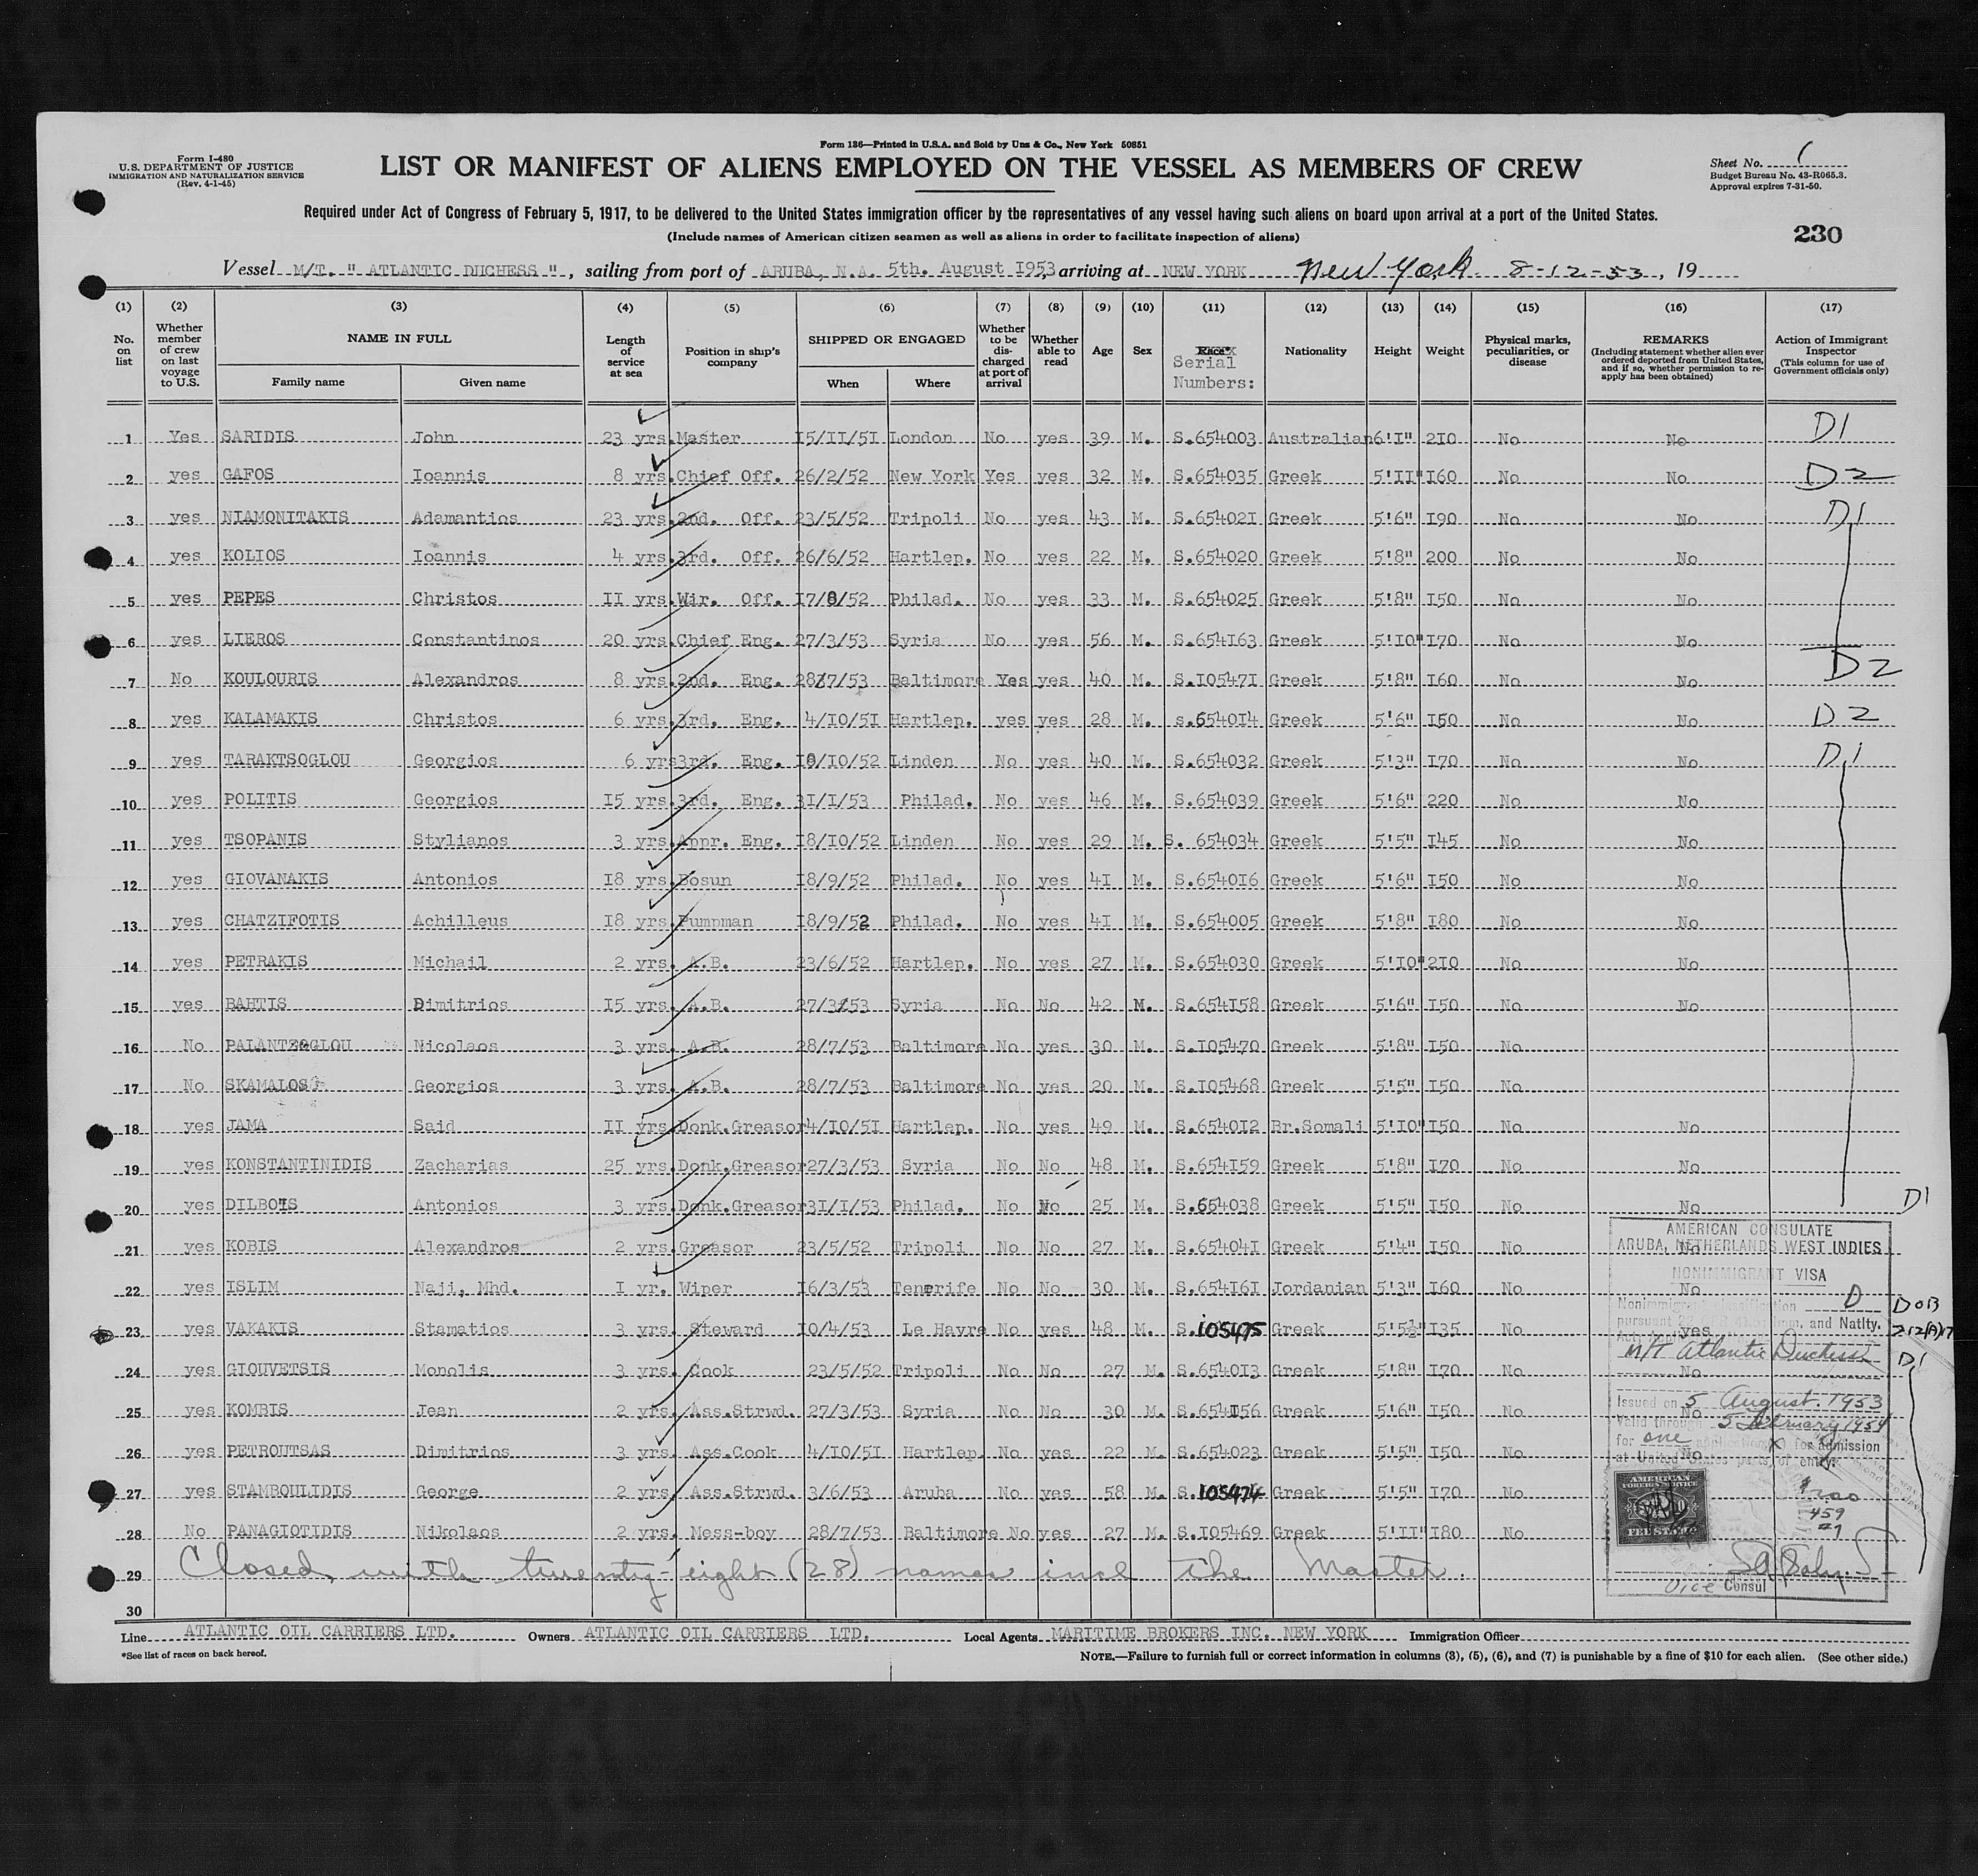 Form 136—Printed in U.S.A. and Sold by Unz & Co., New York 50851
Form I-480
U.S. DEPARTMENT OF JUSTICE
IMMIGRATION AND NATURALIZATION SERVICE
(Rev. 4-1-45)
LIST OR MANIFEST OF ALIENS EMPLOYED ON THE VESSEL AS MEMBERS OF CREW
Sheet No. 1
Budget Bureau No. 43-R065.3.
Approval expires 7-31-50.
Required under Act of Congress of February 5, 1917, to be delivered to the United States immigration officer by the representatives of any vessel having such aliens on board upon arrival at a port of the United States.
(Include names of American citizen seamen as well as aliens in order to facilitate inspection of aliens)
230
Vessel M/T. " ATLANTIC DUCHESS ", sailing from port of ARUBA, N.A. 5th. August 1953 arriving at NEW YORK New York 8-12-53, 19
(1) (2) (3) (4) (5) (6) (7) (8) (9) (10) (11) (12) (13) (14) (15) (16) (17)
No. on list
Whether member of crew on last voyage to U.S.
NAME IN FULL
Family name
Given name
Length of service at sea
Position in ship's company
SHIPPED OR ENGAGED
When
Where
Whether to be discharged at port of arrival
Whether able to read
Age
Sex
Race*
Serial Numbers:
Nationality
Height
Weight
Physical marks, peculiarities, or disease
REMARKS
(Including statement whether alien ever ordered deported from United States, and if so, whether permission to re-apply has been obtained)
Action of Immigrant Inspector
(This column for use of Government officials only)
1 Yes SARIDIS John 23 yrs. Master 15/11/51 London No yes 39 M. S.654003 Australian 6'1" 210 No No D1
2 yes GAFOS Ioannis 8 yrs. Chief Off. 26/2/52 New York Yes yes 32 M. S.654035 Greek 5'11" 160 No No D2
3 yes NIAMONITAKIS Adamantios 23 yrs. 2nd. Off. 23/5/52 Tripoli No yes 43 M. S.654021 Greek 5'6" 190 No No D1
4 yes KOLIOS Ioannis 4 yrs. 3rd. Off. 26/6/52 Hartlep. No yes 22 M. S.654020 Greek 5'8" 200 No No
5 yes PEPES Christos 11 yrs. Wir. Off. 17/8/52 Philad. No yes 33 M. S.654025 Greek 5'8" 150 No No
6 yes LIEROS Constantinos 20 yrs. Chief Eng. 27/3/53 Syria No yes 56 M. S.654163 Greek 5'10" 170 No No
7 No KOULOURIS Alexandros 8 yrs. 2nd. Eng. 28/7/53 Baltimore Yes yes 40 M. S.105471 Greek 5'8" 160 No No D2
8 yes KALAMAKIS Christos 6 yrs. 3rd. Eng. 4/10/51 Hartlep. yes yes 28 M. s.654014 Greek 5'6" 150 No No D2
9 yes TARAKTSOGLOU Georgios 6 yrs 3rd. Eng. 18/10/52 Linden No yes 40 M. S.654032 Greek 5'3" 170 No No D1
10 yes POLITIS Georgios 15 yrs. 3rd. Eng. 31/1/53 Philad. No yes 46 M. S.654039 Greek 5'6" 220 No No
11 yes TSOPANIS Stylianos 3 yrs. Appr. Eng. 18/10/52 Linden No yes 29 M. S. 654034 Greek 5'5" 145 No No
12 yes GIOVANAKIS Antonios 18 yrs. Bosun 18/9/52 Philad. No yes 41 M. S.654016 Greek 5'6" 150 No No
13 yes CHATZIFOTIS Achilleus 18 yrs. Pumpman 18/9/52 Philad. No yes 41 M. S.654005 Greek 5'8" 180 No No
14 yes PETRAKIS Michail 2 yrs. A.B. 23/6/52 Hartlep. No yes 27 M. S.654030 Greek 5'10" 210 No No
15 yes BAHTIS Dimitrios 15 yrs. A.B. 27/3/53 Syria No No 42 M. S.654158 Greek 5'6" 150 No No
16 No PALANTZOGLOU Nicolaos 3 yrs. A.B. 28/7/53 Baltimore No yes 30 M. S.105470 Greek 5'8" 150 No
17 No SKAMALOS Georgios 3 yrs. A.B. 28/7/53 Baltimore No yes 20 M. S.105468 Greek 5'5" 150 No
18 yes JAMA Said 11 yrs. Donk.Greasor 4/10/51 Hartlep. No yes 49 M. S.654012 Br.Somali 5'10" 150 No No
19 yes KONSTANTINIDIS Zacharias 25 yrs. Donk.Greasor 27/3/53 Syria No No 48 M. S.654159 Greek 5'8" 170 No No
20 yes DILBOIS Antonios 3 yrs. Donk.Greasor 31/1/53 Philad. No No 25 M. S.654038 Greek 5'5" 150 No No D1
21 yes KOBIS Alexandros 2 yrs. Greasor 23/5/52 Tripoli No No 27 M. S.654041 Greek 5'4" 150 No No
22 yes ISLIM Naji, Mhd. 1 yr. Wiper 16/3/53 Tenerife No No 30 M. S.654161 Jordanian 5'3" 160 No No
23 yes VAKAKIS Stamatios 3 yrs. Steward 10/4/53 Le Havre No yes 48 M. S.105475 Greek 5'5½" 135 No yes DOB 212(A)17
24 yes GIOUVETSIS Monolis 3 yrs. Cook 23/5/52 Tripoli No No 27 M. S.654013 Greek 5'8" 170 No No D1
25 yes KOMBIS Jean 2 yrs. Ass.Strwd. 27/3/53 Syria No No 30 M. S.654156 Greek 5'6" 150 No No
26 yes PETROUTSAS Dimitrios 3 yrs. Ass.Cook 4/10/51 Hartlep. No yes 22 M. S.654023 Greek 5'5" 150 No No
27 yes STAMBOULIDIS George 2 yrs. Ass.Strwd. 3/6/53 Aruba No yes 58 M. S.105474 Greek 5'5" 170 No
28 No PANAGIOTIDIS Nikolaos 2 yrs. Mess-boy 28/7/53 Baltimore No yes 27 M. S.105469 Greek 5'11" 180 No
29 Closed with twenty-eight (28) names incl the Master.
30
AMERICAN CONSULATE
ARUBA, NETHERLANDS WEST INDIES
NONIMMIGRANT VISA
Nonimmigrant classification D
pursuant 22 CFR 41. Imm. and Natlty.
M/T Atlantic Duchess
Issued on 5 August 1953
Valid through 5 February 1954
for one application for admission
at United States ports of entry.
AMERICAN
FOREIGN SERVICE
FEE STAMP
459
Vice Consul
Line ATLANTIC OIL CARRIERS LTD. Owners ATLANTIC OIL CARRIERS LTD. Local Agents MARITIME BROKERS INC. NEW YORK Immigration Officer
*See list of races on back hereof.
NOTE.—Failure to furnish full or correct information in columns (3), (5), (6), and (7) is punishable by a fine of $10 for each alien. (See other side.)